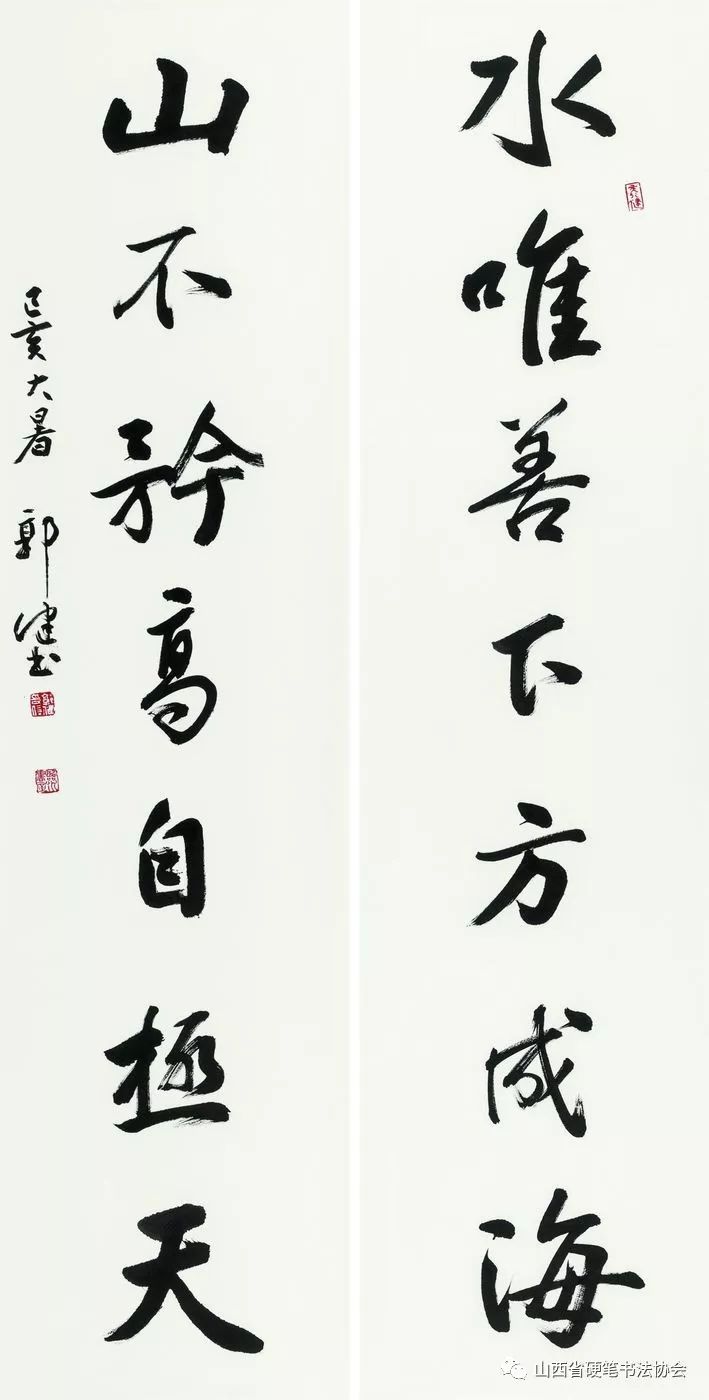 水唯善下方成海
山不矜高自極天
己亥大暑 郭健书
山西省硬笔书法协会